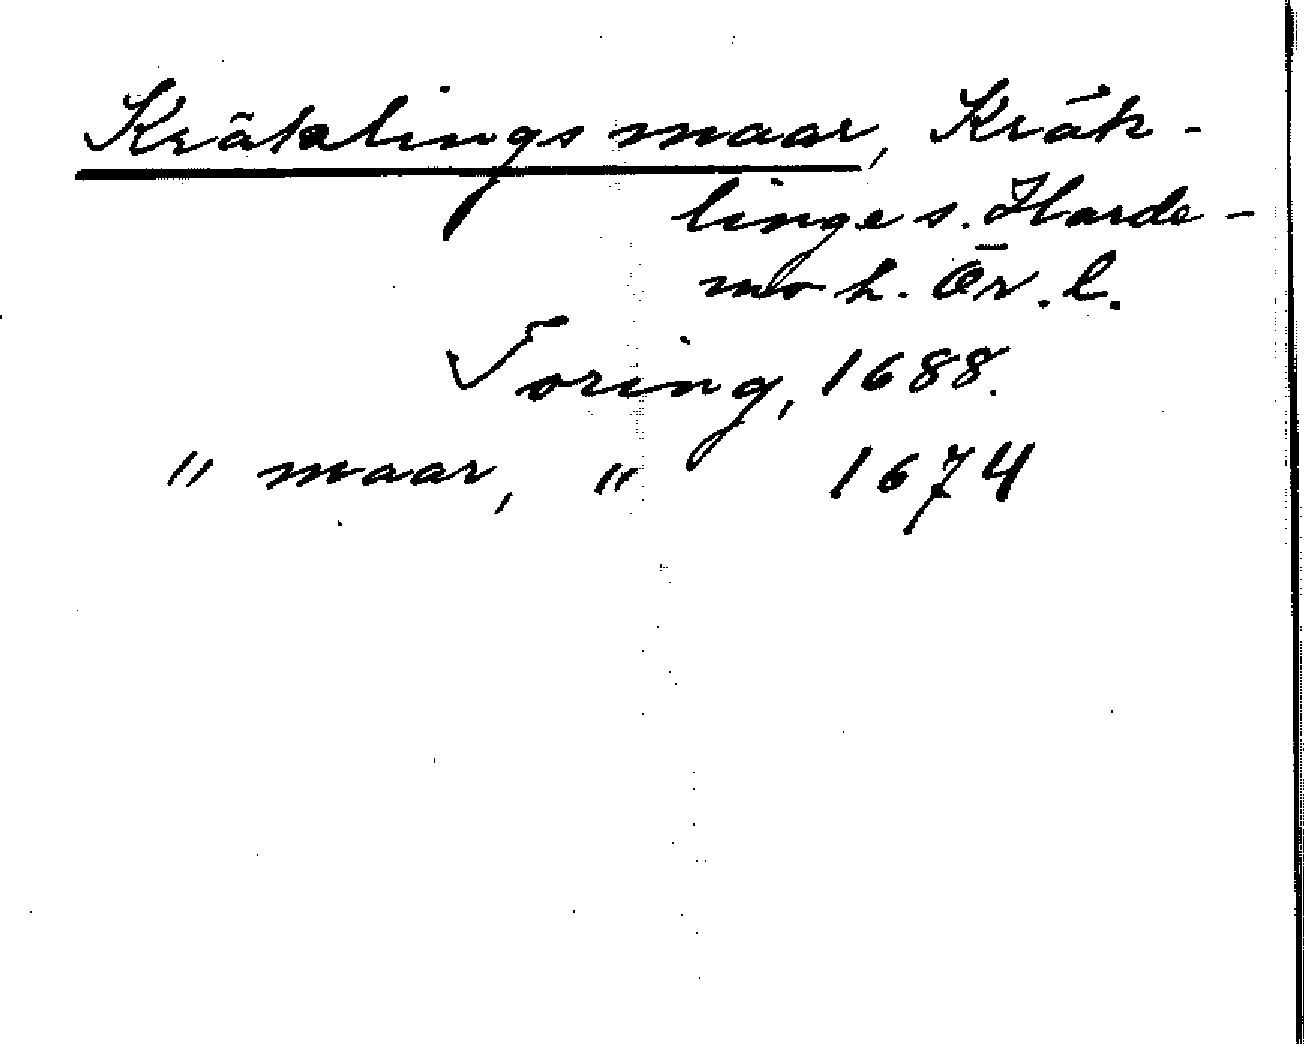 Kräklingsmaar, Kräk-
linge s. Harde-
mo h. Ör. l.
Toring, 1688.
" maar, " 1674